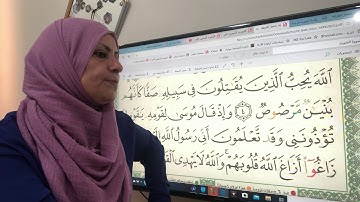 ٱللَّهَ يُحِبُّ ٱلَّذِينَ يُقَـٰتِلُونَ فِى سَبِيلِهِۦ صَفًّا كَأَنَّهُم
بُنْيَـٰنٌ مَّرْصُوصٌ ٤ وَإِذْ قَالَ مُوسَىٰ لِقَوْمِهِۦ يَـٰقَوْمِ
تُؤْذُونَنِى وَقَد تَّعْلَمُونَ أَنِّى رَسُولُ ٱللَّهِ
زَاغُوٓا۟ أَزَاغَ ٱللَّهُ قُلُوبَهُمْ ۚ وَٱللَّهُ لَا يَهْدِى